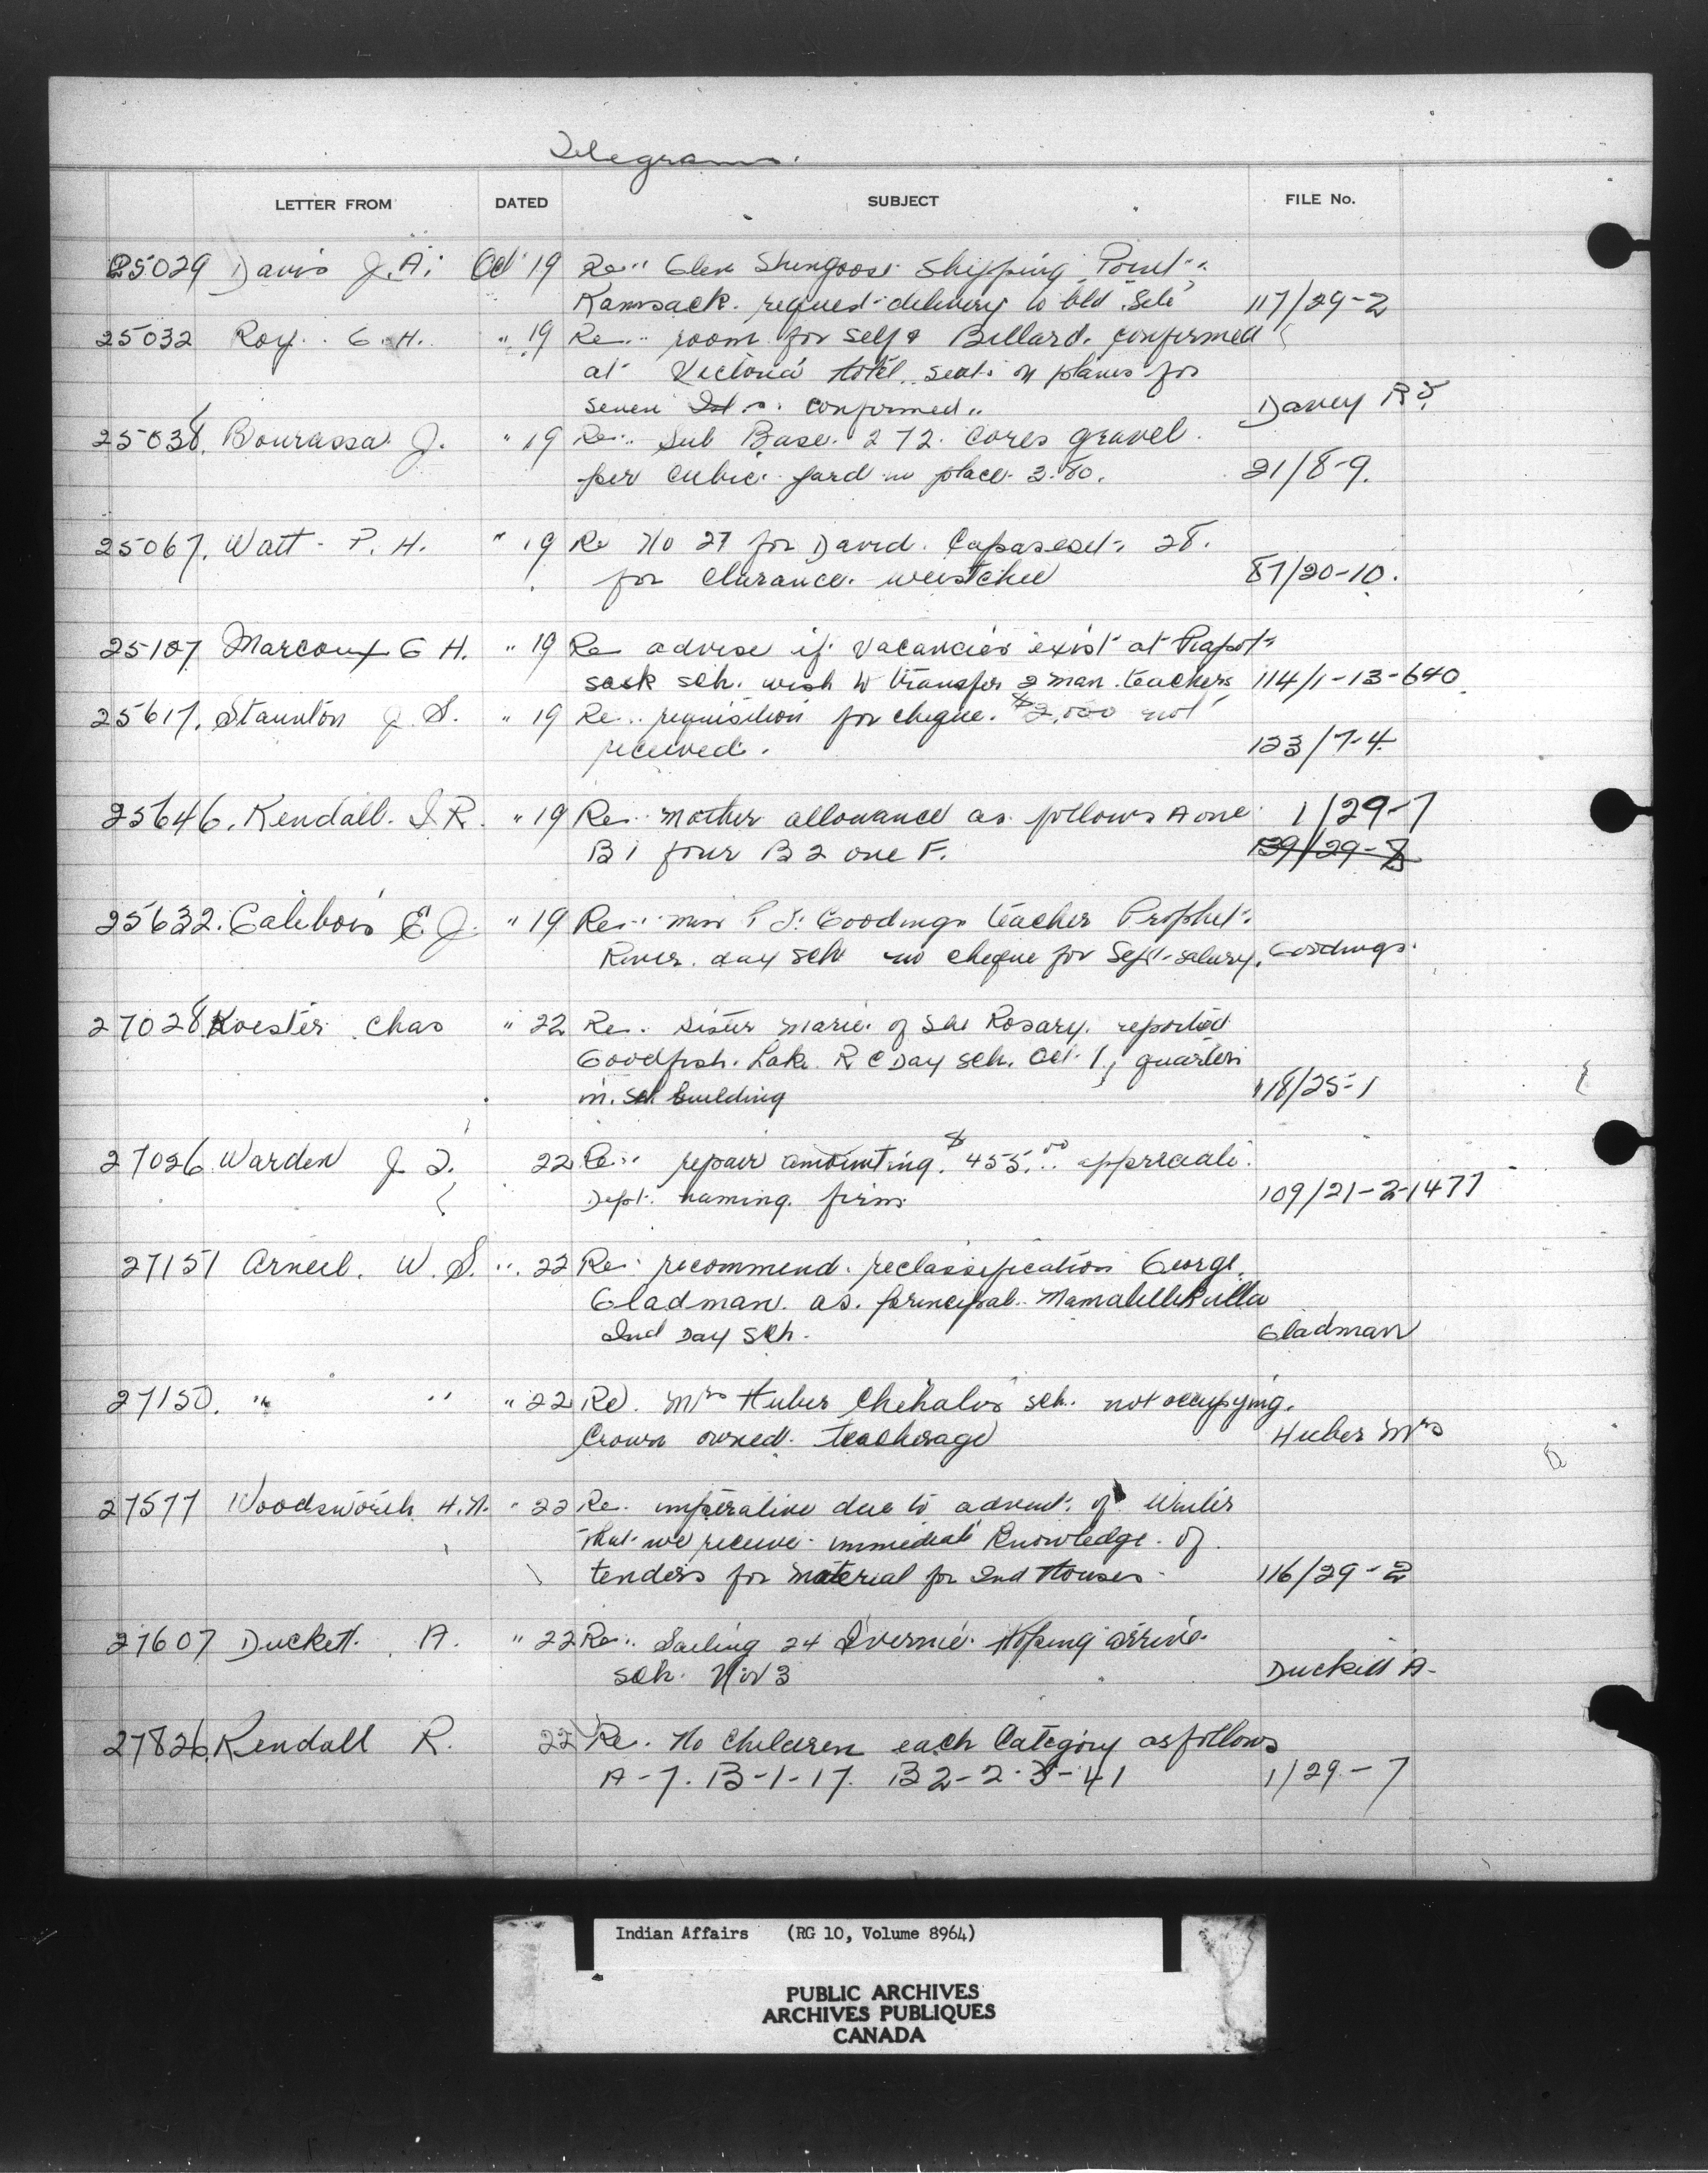 Telegrams.
LETTER FROM DATED SUBJECT FILE No.
25029 Davis J. A. Oct 19 Re.. Glen Shingoose Shipping Point..
Kamsack. request delivery to bld. Site 117/29-2
25032 Roy. G. H. " 19 Re... room for self & Bellard. confirmed
at Victoria Hotel.. seats on planes for
seven confirmed.. Davey R F.
25038. Bourassa J. " 19 Re.. Sub Base. 272. gravel.
per cubic. yard in place. 3.80. 21/8-9.
25067. Watt - P. H. " 19 Re No 27 for David. 28.
for Clarance. 87/20-10.
25107 Marcoux G H. " 19 Re advise if vacancies exist at Piapot
sask sch. wish to transfer 2 man. teachers 114/1-13-640
25617. Staunton J. S. " 19 Re.. requisition for cheque. $2,000 not
received. 123/7-4.
25646. Kendall. I R. " 19 Re.. mother allowance as follows A one 1/29-7
B1 four B2 one F. 139/29-7
25632. Galibois E J. " 19 Re... miss Goodings teacher Prophet
River. day sch no cheque for Sept.-salary. Goodings.
27028 Koester Chas " 22 Re.. sister marie. of the Rosary. reported
Goodfish. Lake. R C Day sch. Oct. 1, quarters
in. sch building 118/25-1
27026 Warden J. 22 Re.. repair amounting. $455.00 appreciate.
Dept. naming. firm. 109/21-2-1477
27151 Arneil. W. S. ". 22 Re. recommend. reclassification George.
Gladman. as. principal. Mamalillikulla
Ind Day sch. Gladman
27150. " " " 22 Re. Mrs Huber Chehalis sch. not occupying.
Crown owned. teacherage Huber Mrs
27577 Woodsworth H. N. " 22 Re. imperative due to advent. of Winter
that we receive. immediate Knowledge. of
tenders for material for Ind Houses. 116/29-2
27607 Duckett. A. " 22 Re.. Sailing 24 Ivernia. Hoping arrive.
sch. Nov 3 Duckett A-
27826. Kendall R. 22 Re. No Children each Category as follows
A-7. B-1-17. B2-2. 3-41 1/29-7
Indian Affairs (RG 10, Volume 8964)
PUBLIC ARCHIVES
ARCHIVES PUBLIQUES
CANADA